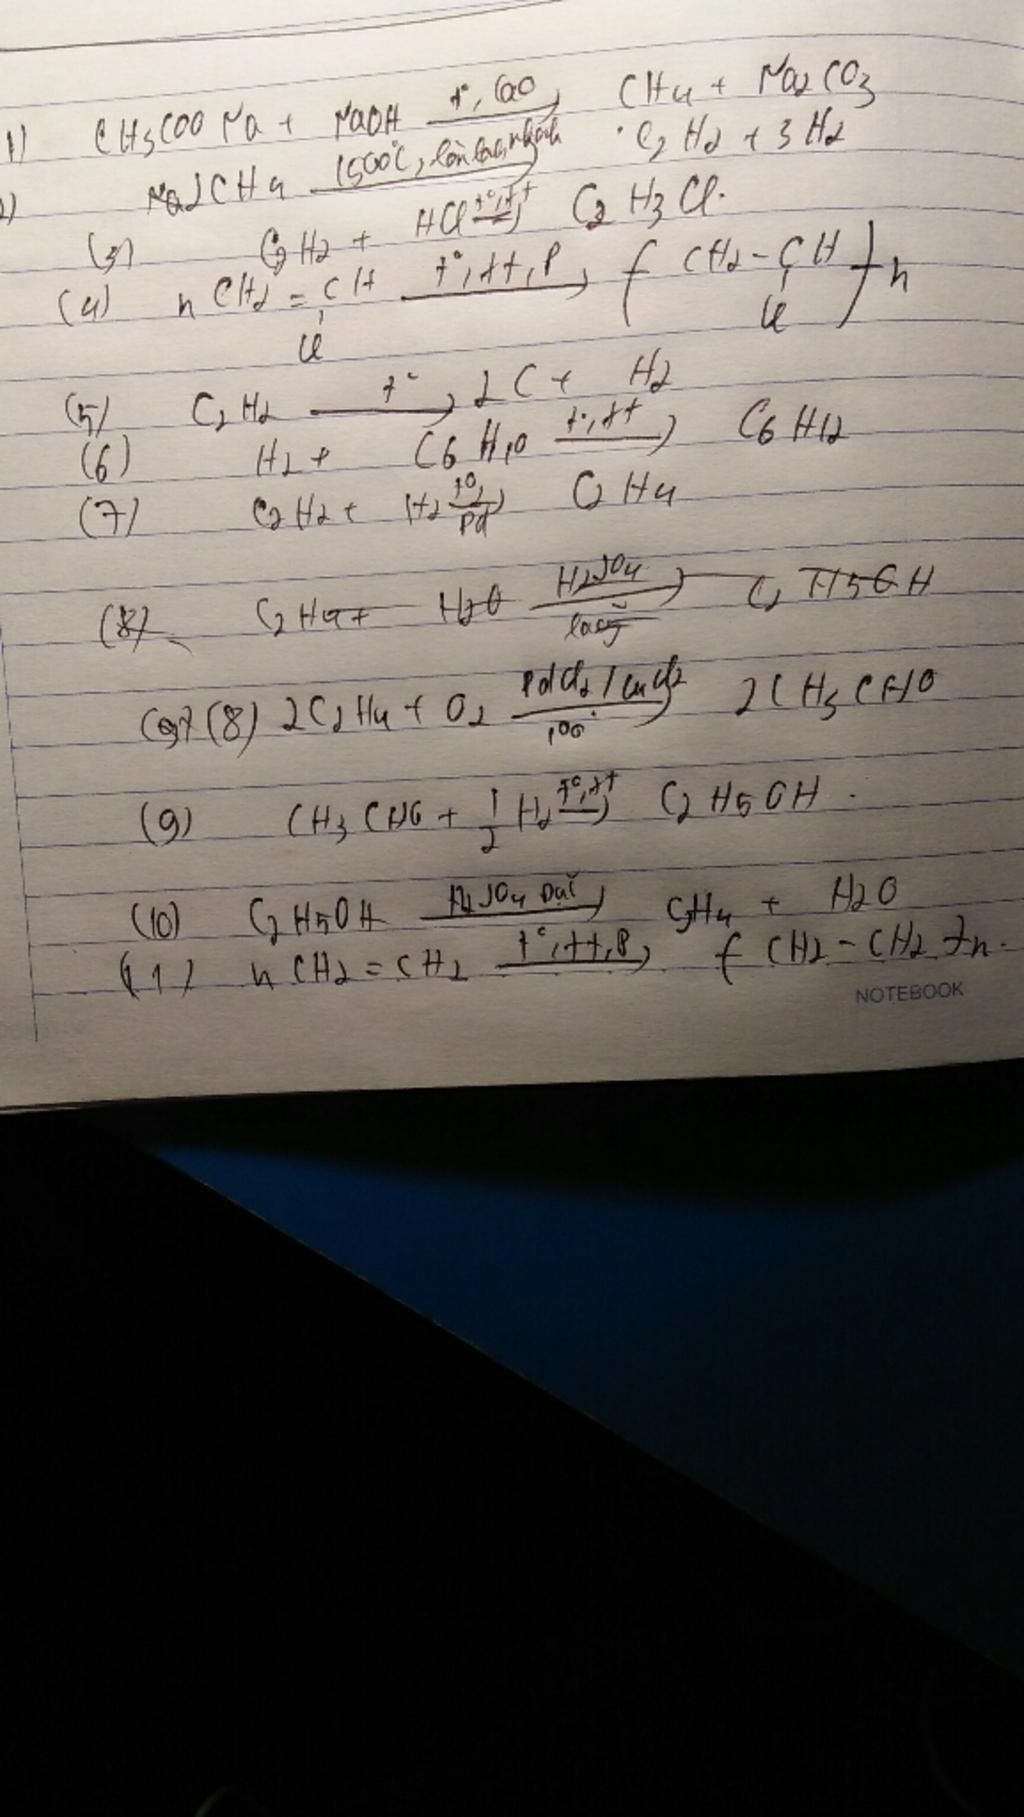 1) CH3COONa + NaOH t°, CaO → CH4 + Na2CO3
2) 2CH4 1500°C, làm lạnh nhanh → C2H2 + 3H2
(3) C2H2 + HCl t°, tt → C2H3Cl.
(4) n CH2 = CH t°, tt, P → ( CH2 - CH )n
Cl Cl
(5) C2H2 t° → 2C + H2
(6) H2 + C6H10 t°, tt → C6H12
(7) C2H2 + H2 t°, Pd → C2H4
(8) C2H4 + H2O H2SO4 loãng → C2H5OH
(8) 2C2H4 + O2 PdCl2 / CuCl2 100° → 2CH3CHO
(9) CH3CHO + 1/2 H2 t°, tt → C2H5OH.
(10) C2H5OH H2SO4 → C2H4 + H2O
(11) n CH2 = CH2 t°, tt, P → ( CH2 - CH2 )n.
NOTEBOOK